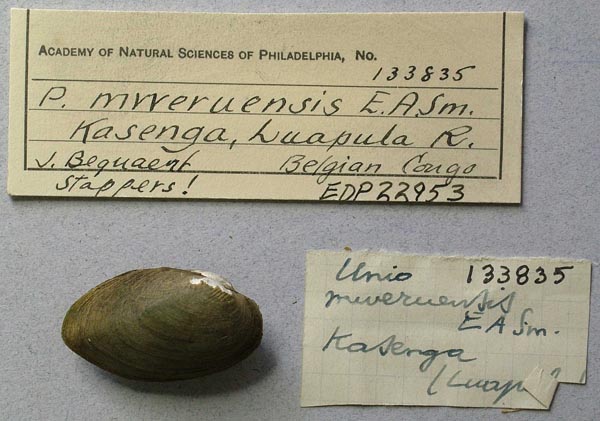 ACADEMY OF NATURAL SCIENCES OF PHILADELPHIA, NO.
133835
P. mweruensis E.A.Sm.
Kasenga, Luapula R.
J. Bequaert Belgian Congo
Stappers! EDP22953
Unio 133835
mweruensis
E A Sm.
Kasenga